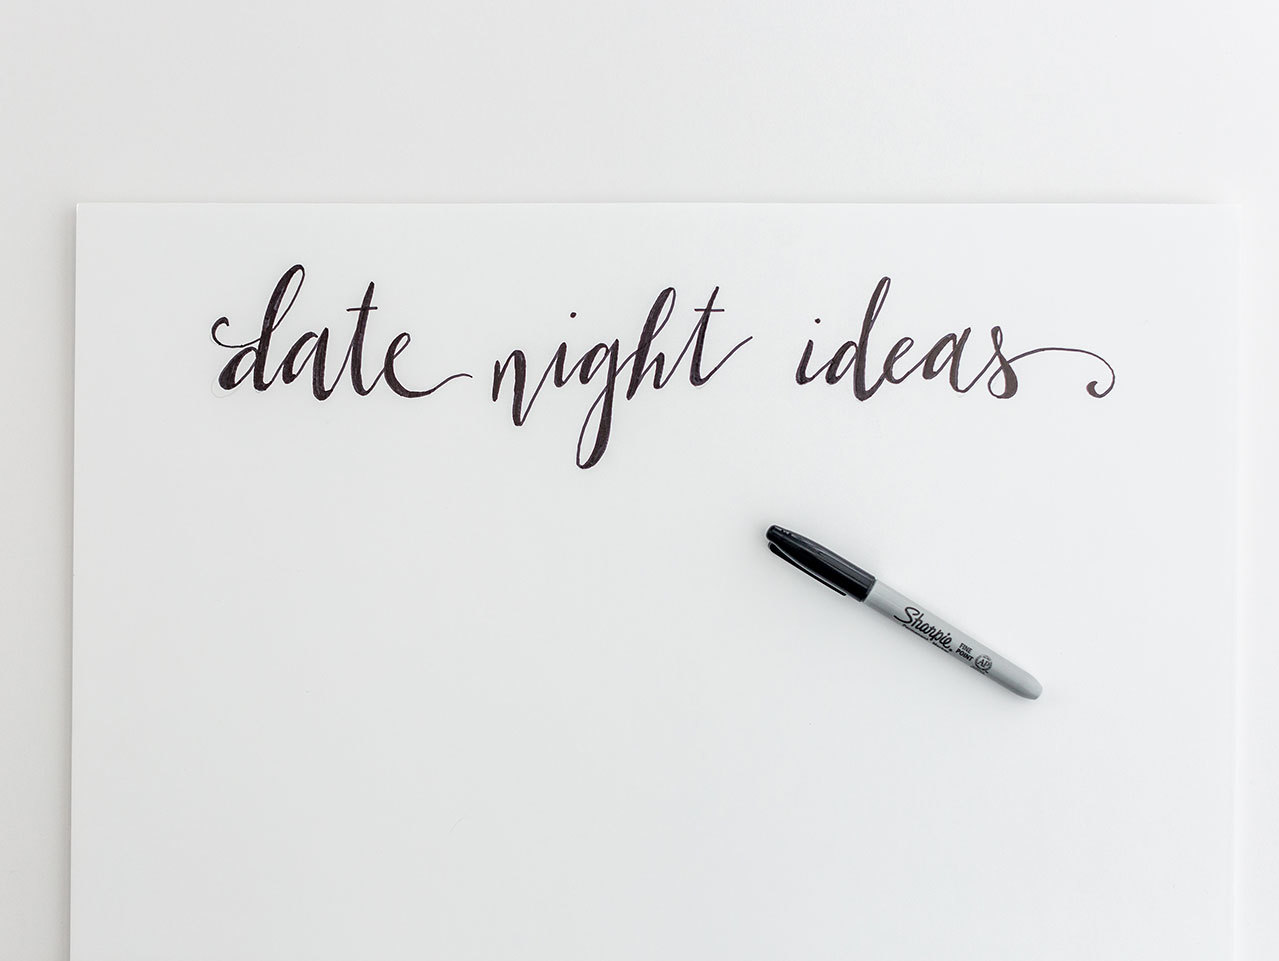 date night ideas
Sharpie
FINE
POINT
AP